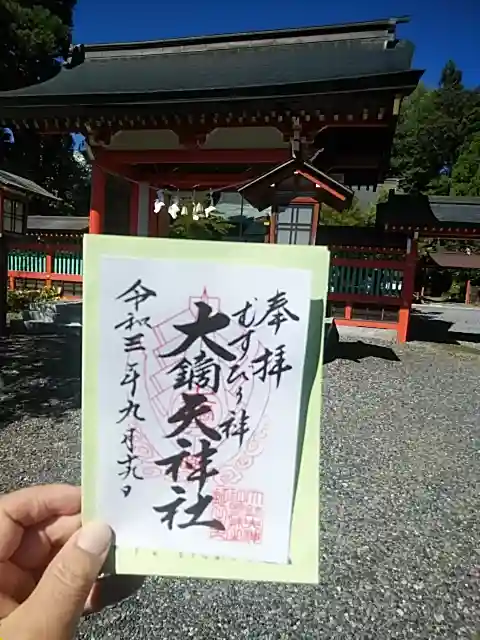 奉拝
むすびの神
大鏑矢神社
令和三年九月十九日